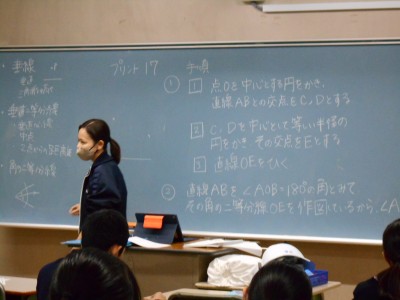 ・垂線
プリント17
手順
① 1 点Oを中心とする円をかき、
直線ABとの交点をC,Dとする
2 C,Dを中心として等しい半径の
円をかき その交点をEとする
3 直線OEをひく
② 直線ABを∠AOB=180°の角とみて
その角の二等分線OEを作図しているから、∠A
・垂直二等分線
中点
・角の二等分線